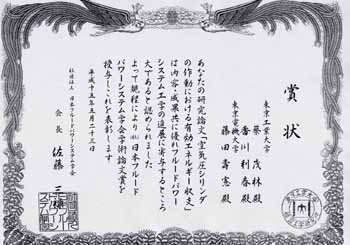 賞状
東京工業大学
蔡 茂林殿
香川利春殿
東京電機大学
藤田壽憲殿
あなたの研究論文「空気圧シリンダ
の作動における有効エネルギー収支」
は内容・成果共に優れフルードパワー
システム工学の進展に寄与するところ
大であると認められました
よって規程により(社)日本フルード
パワーシステム学会学術論文賞を
授与しこれを表彰します
平成十五年五月二十三日
社団法人 日本フルードパワーシステム学会
会長 佐藤 三